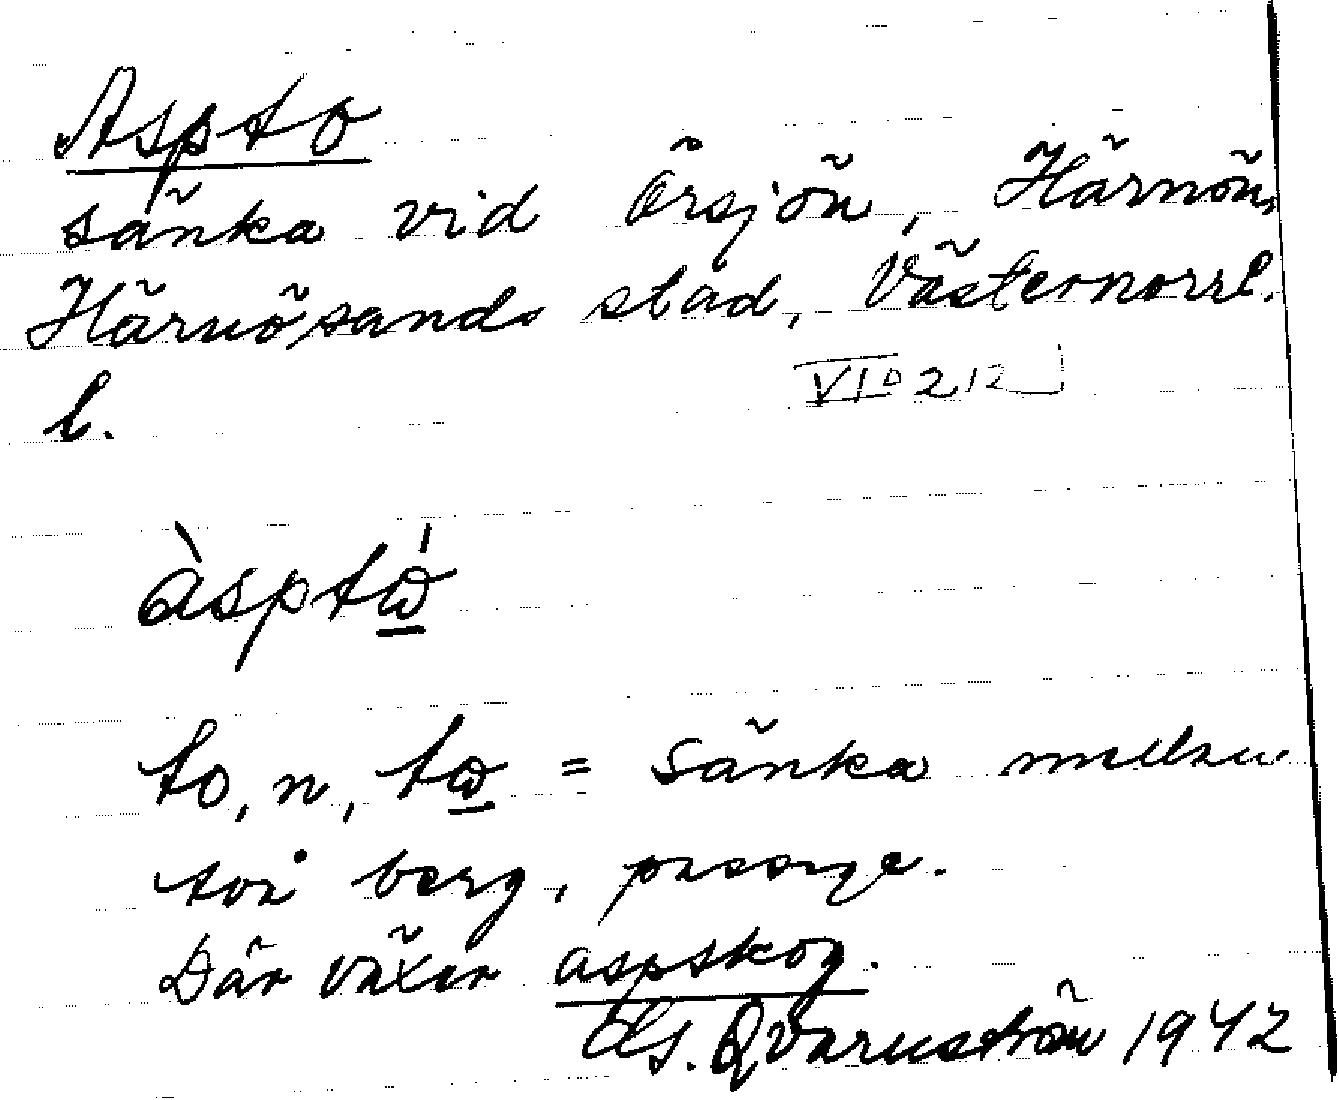 Aspto
sänka vid Örsjön, Härnön,
Härnösands stad, Västernorrl.
VID 212
l.
àsptώ̲
to, n, tω̲ = sänka mellan
två berg, passage.
Där växer aspskog.
Qvarnström 1942